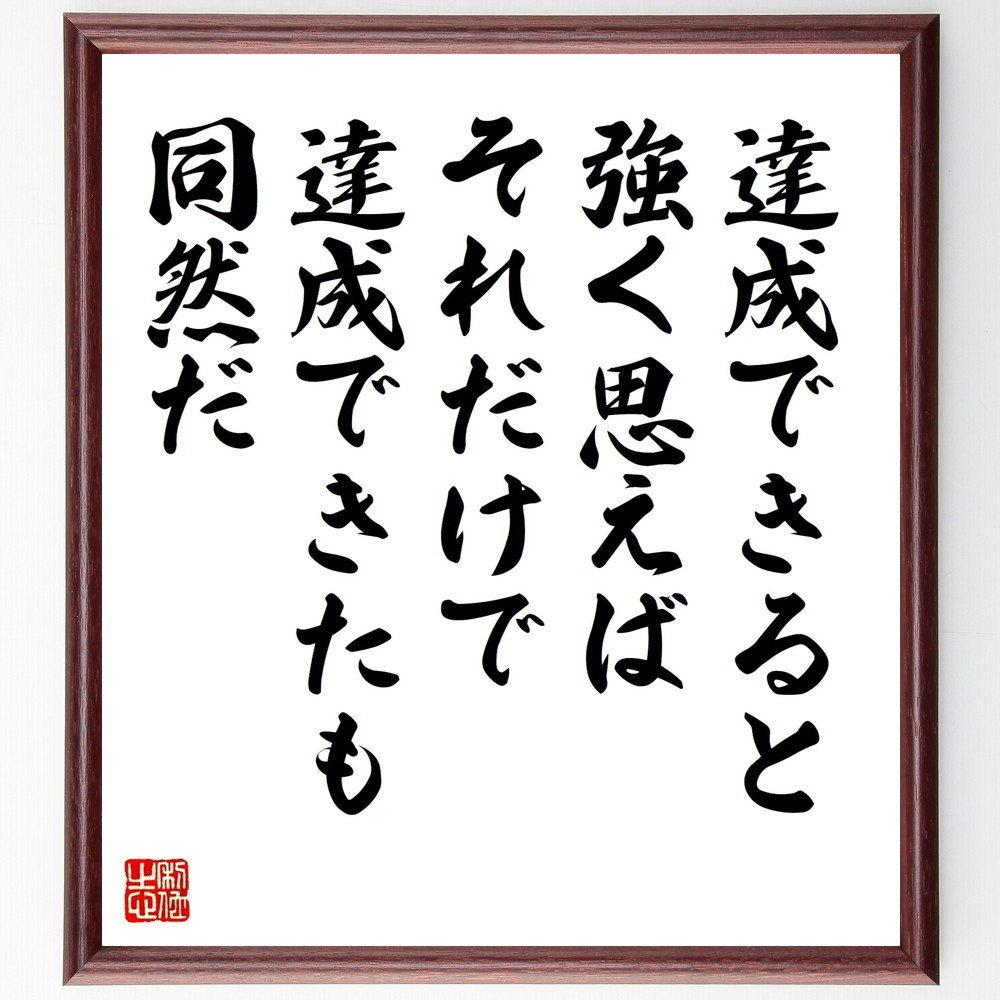 達成できると
強く思えば
それだけで
達成できたも
同然だ